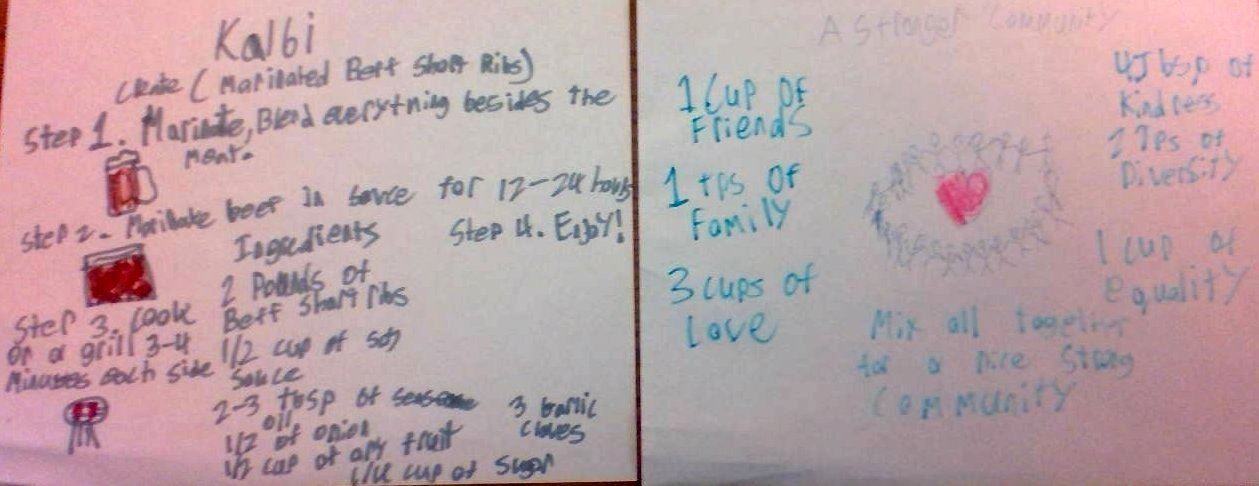 Kalbi
(Marinated Beff Short Ribs)
Step 1. Marinate, Blend everything besides the
meat.
Step 2. Marinate beef in sauce for 12-24 hours
Ingredients
Step 4. Enjoy!
2 Pounds of
Beff Short ribs
1/2 cup of soy
Sauce
2-3 tbsp of
oil
1/2 of onion
1/2 cup of any fruit
1/4 cup of Sugar
3 Garlic
cloves
Step 3. Cook
on a grill 3-4
Minutes each side
A Stronger Community
1 Cup of
Friends
1 tps of
Family
3 cups of
Love
tbsp of
Kindness
Tps of
Diversity
1 cup of
equality
Mix all together
for a nice Strong
Community